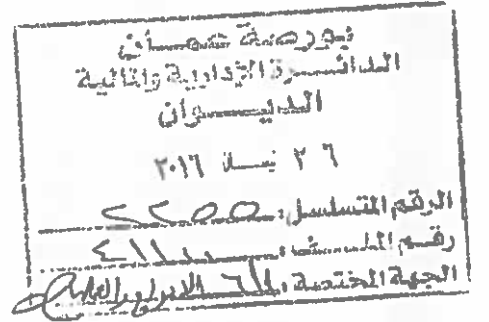 بورصة عمان
الدائرة الإدارية والمالية
الديوان
٢٦ نيسان ٢٠١٦
الرقم المتسلسل: ٢٢٥٥
رقم الملف: ٤١١
الجهة المختصة: الإدراج